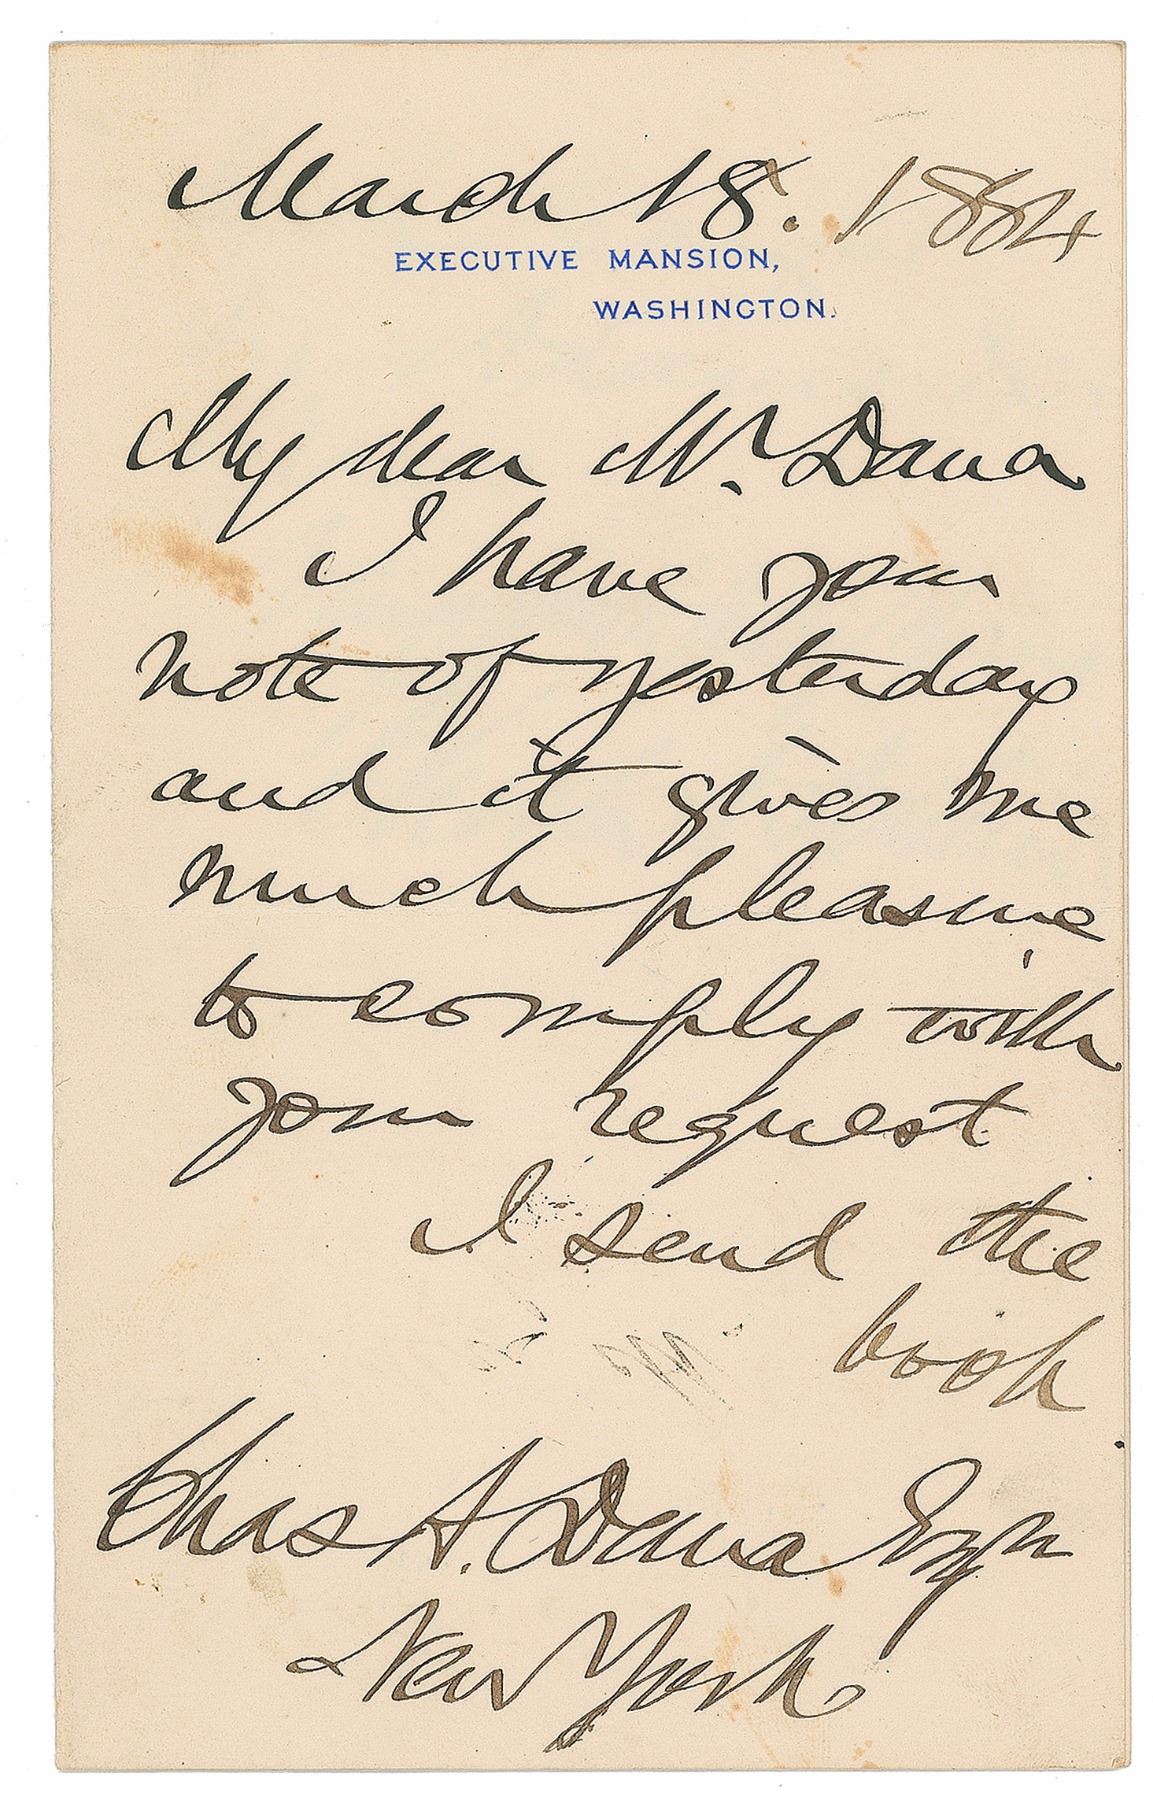 March 18. 1884
EXECUTIVE MANSION,
WASHINGTON.
My dear Mr. Dana
I have your
note of yesterday
and it gives me
much pleasure
to comply with
your request
I send the
book
Chas A. Dana Esqr
New York